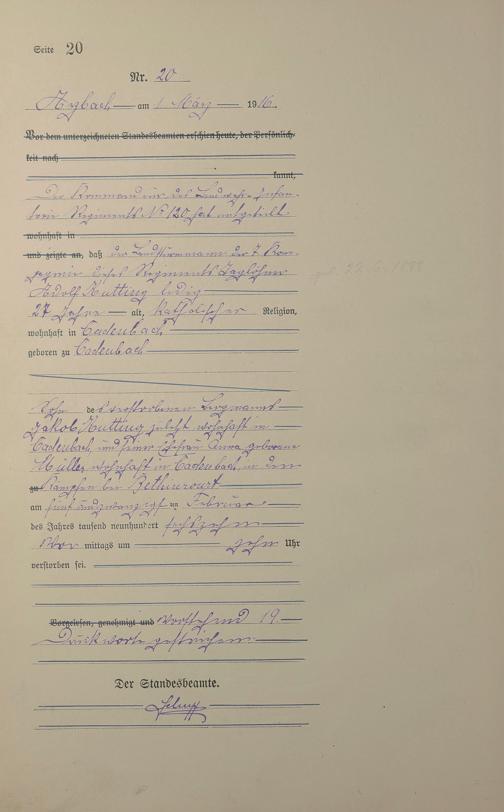 Seite 20
Nr. 20
Arzbach am 1 März 1916.
Vor dem unterzeichneten Standesbeamten erschien heute, der Persönlich-
keit nach
kannt,
Der Kommandeur des Landwehr-Infan-
terie Regiments No 120 hat mitgeteilt
wohnhaft in
und zeigte an, daß der Landsturmmann der 7. Kom-
pagnie dieses Regiments Taglöhner
Adolf Nutting ledig
27 Jahre alt, katholischer Religion,
wohnhaft in Cadenbach
geboren zu Cadenbach
Sohn des verstorbenen Bergmanns
Jakob Nutting zuletzt wohnhaft in
Cadenbach, und seiner Ehefrau geborene
Müller wohnhaft in Cadenbach, in den
zu Kämpfen bei Bethincourt
am fünfundzwanzigsten Februar
des Jahres tausend neunhundert sechszehn
Vor mittags um zehn Uhr
verstorben sei.
Vorgelesen, genehmigt und Vorstehend 19
Druckworte gestrichen
Der Standesbeamte.